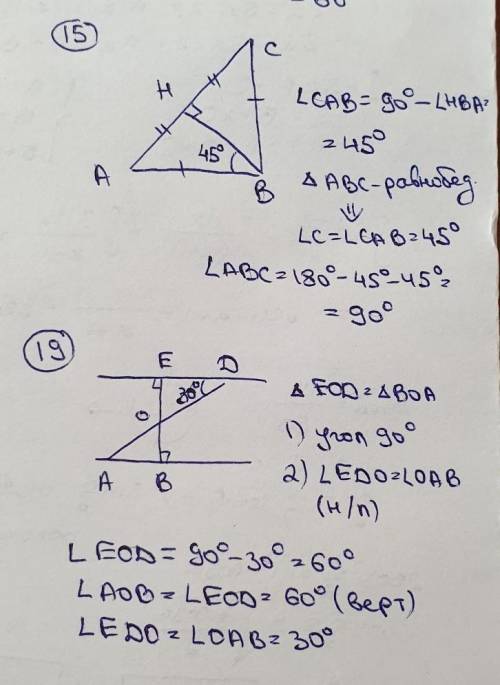 15
C
H
45°
A
B
∠CAB = 90° - ∠HBA =
= 45°
△ ABC - равнобед.
⇓
∠C = ∠CAB = 45°
∠ABC = 180° - 45° - 45° =
= 90°
19
E D
30°
O
A B
△ EOD = △BOA
1) угол 90°
2) ∠EDO = ∠OAB
(н/л)
∠EOD = 90° - 30° = 60°
∠AOB = ∠EOD = 60° (верт)
∠EDO = ∠OAB = 30°